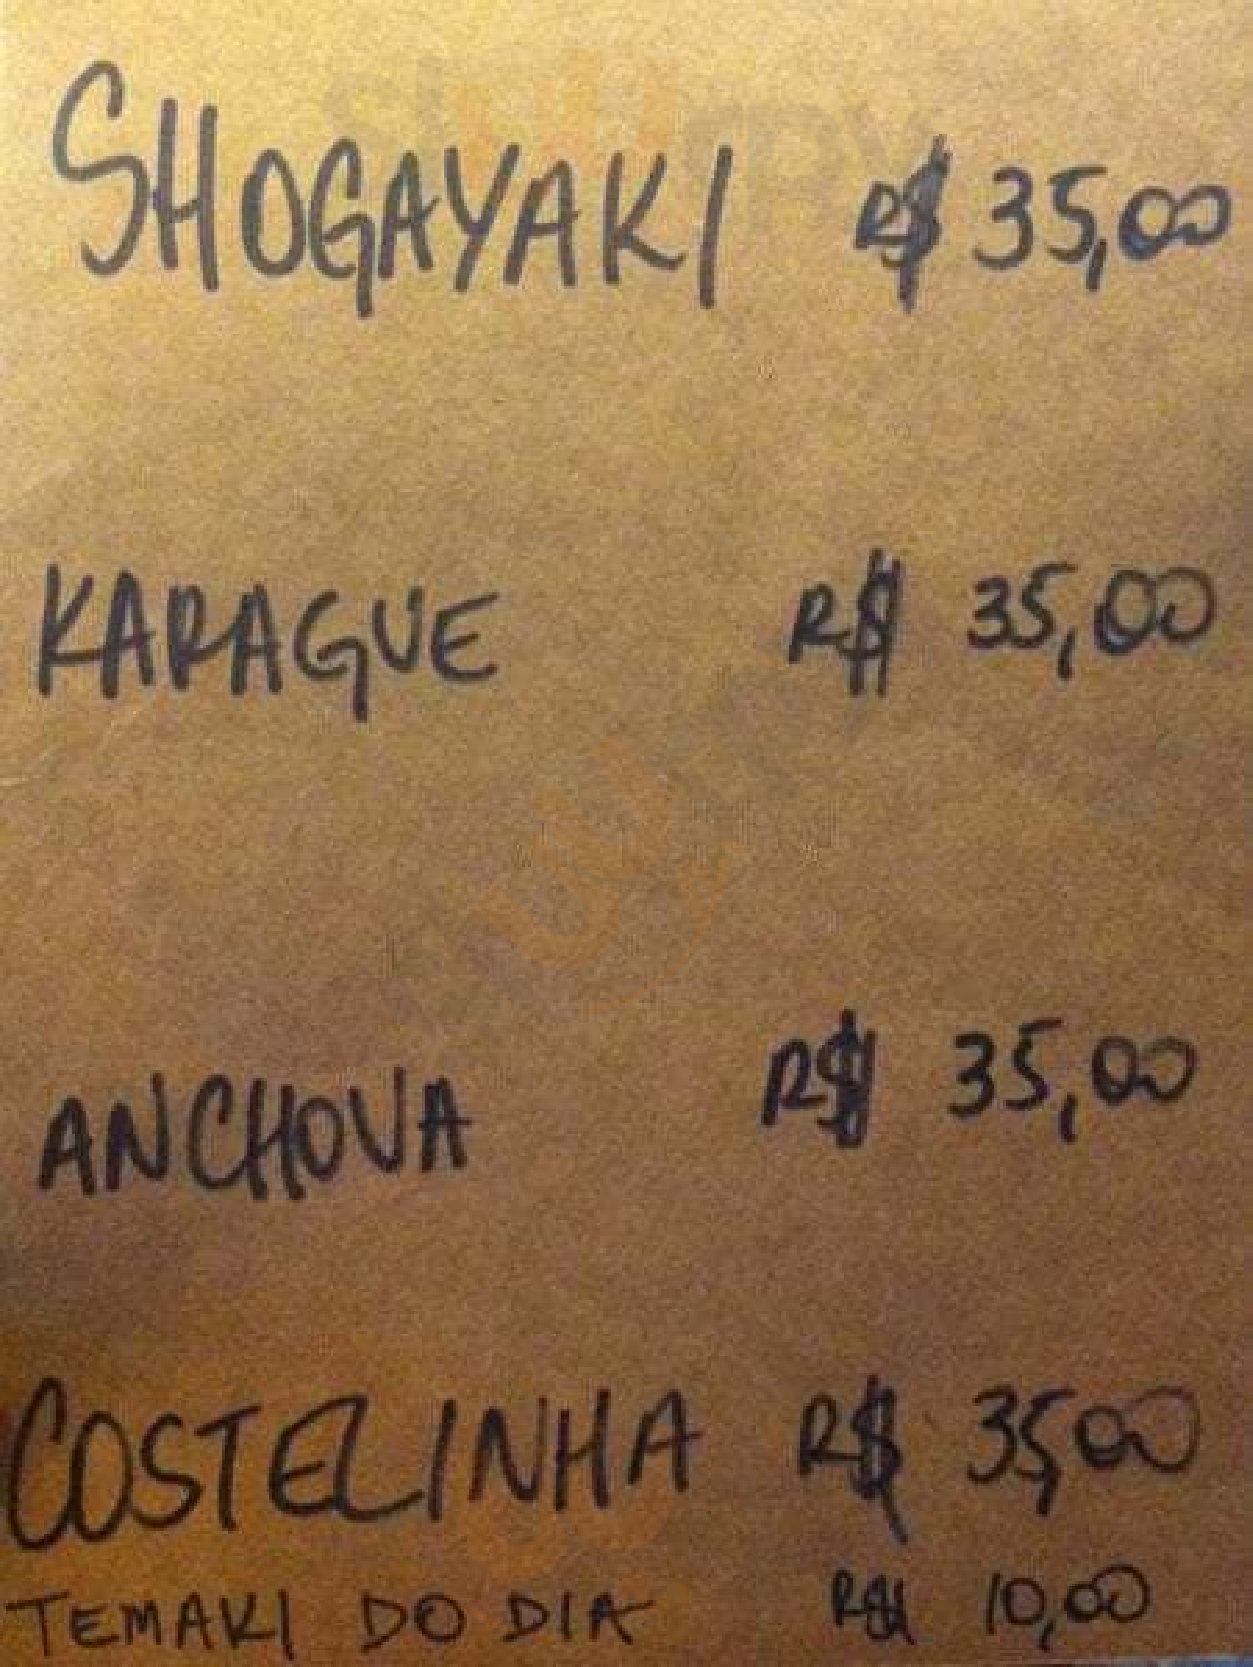 SHOGAYAKI R$ 35,00
KARAGUE R$ 35,00
ANCHOVA R$ 35,00
COSTELINHA R$ 35,00
TEMAKI DO DIA R$ 10,00